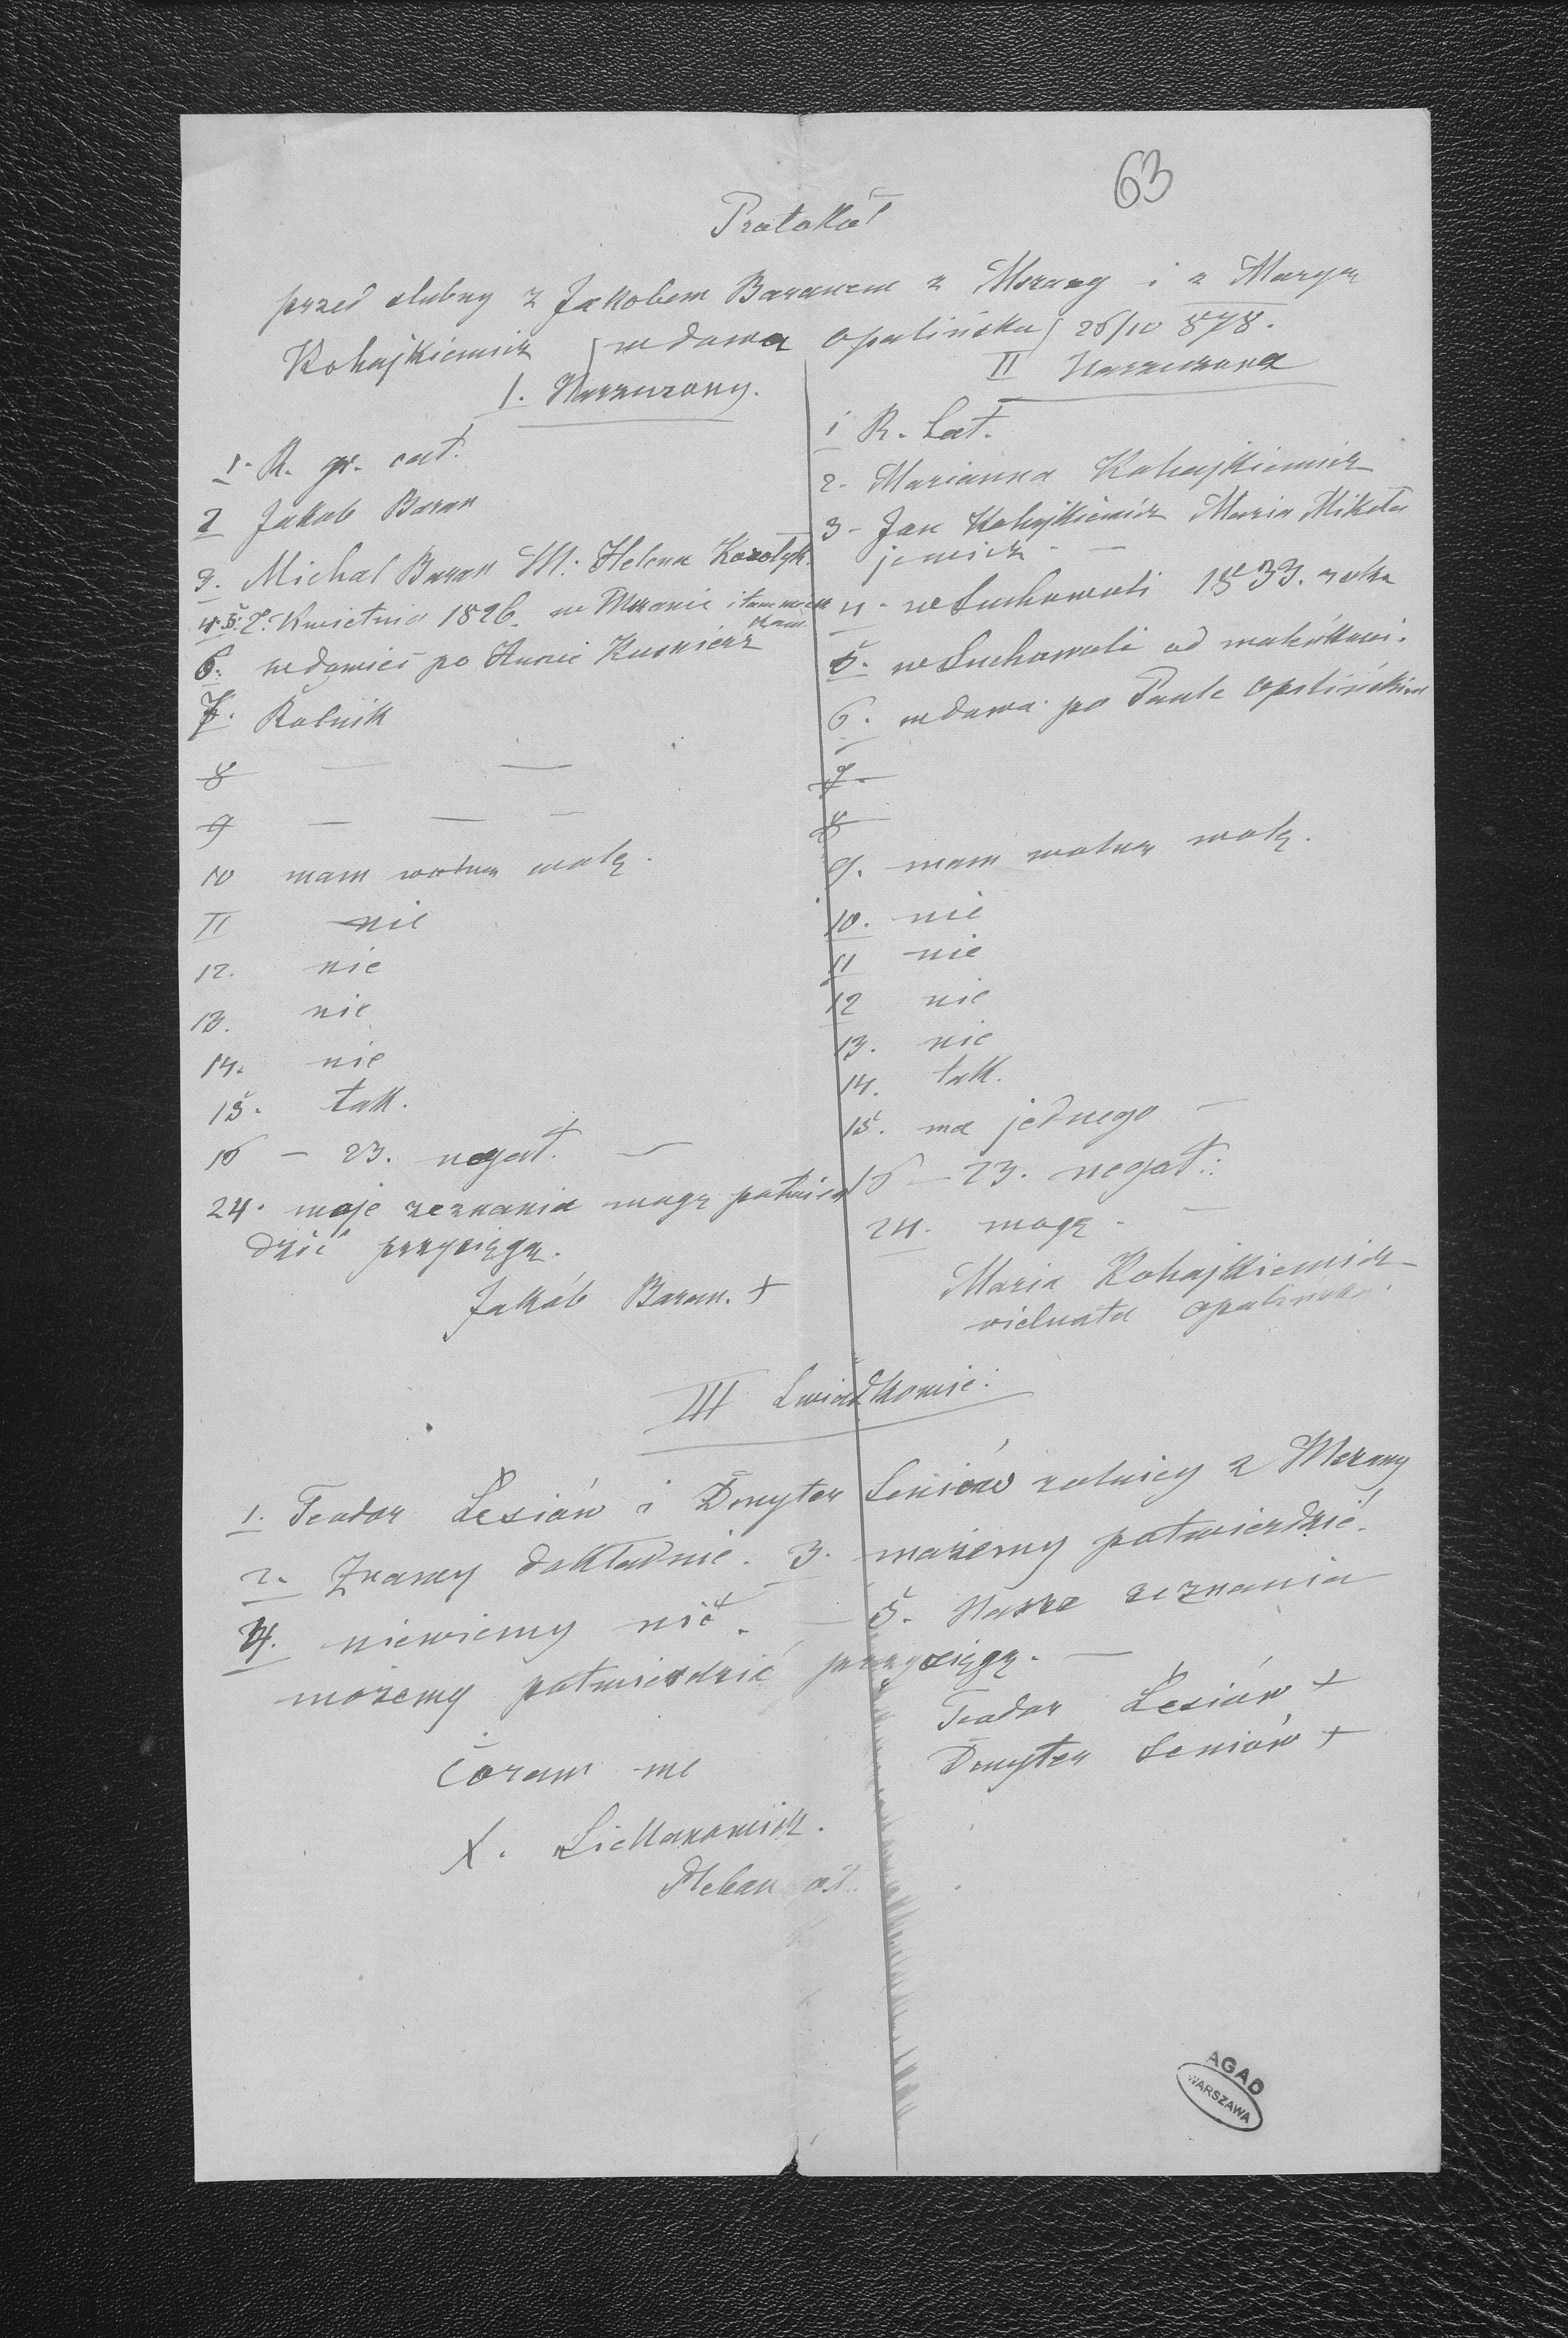 63
Protokół
przed ślubny z Jakobem Baranem z Mszany i z Maryą
Kohajkiewicz (wdowa Opalińska) 26/10 878.
I. Narzeczony.
1. R. gr. cat.
2 Jakob Baran
3. Michal Baran M: Helena
4. 5. 2. Kwietnia 1826. w Mszanie i tam
6. wdowiec po Annie Kusnierz
7. Rolnik
8 — —
9 — — —
10 mam wolną wolę.
11 nie
12. nie
13. nie
14. nie
15. tak.
16 – 23. negat. —
24. moje zeznania mogę potwier
dzić przysięgą.
Jakób Baran. +
II Narzeczona
1 R. Lat.
2. Marianna Kohajkiewicz
3 - Jan Kohajkiewicz Maria Mikoła
jewicz - —
4. w Suchowoli 1833. roku
5. w Suchowoli od
6. wdowa po Pawle Opalińskim
7. —
8 —
9. mam wolną wolę.
10. nie
11 nie
12 nie
13. nie
14. tak.
15. ma jednego —
16 – 23. negat:
24. mogę. —
Maria Kohajkiewicz
viduata Opalińska.
III Świadkowie:
1. Teodor Łesiów i Dmyter Seniów rolnicy z Mszany
2. Znamy dokładnie. 3. możemy potwierdzić.
4. niewiemy nić. — 5. Nasze zeznania
możemy potwierdzić przysięgą. —
Teodor Łesiów +
Dmyter Seniów +
Coram me
X.
Pleban
AGAD
WARSZAWA